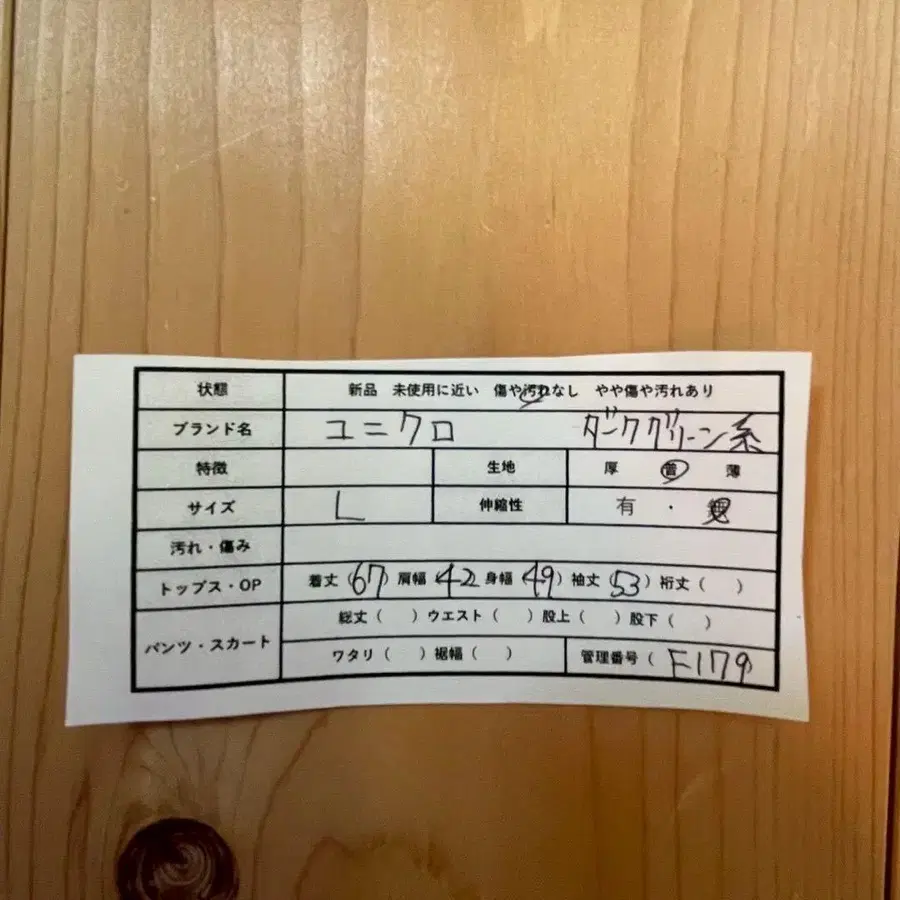 状態 新品 未使用に近い 傷や汚れなし やや傷や汚れあり
ブランド名 ユニクロ ダークグリーン系
特徴 生地 厚 普 薄
サイズ L 伸縮性 有 ・ 無
汚れ・傷み
トップス・OP 着丈(67) 肩幅(42 身幅(49) 袖丈(53) 裄丈( )
パンツ・スカート 総丈( ) ウエスト( ) 股上( ) 股下( )
ワタリ( ) 裾幅( ) 管理番号( F179)